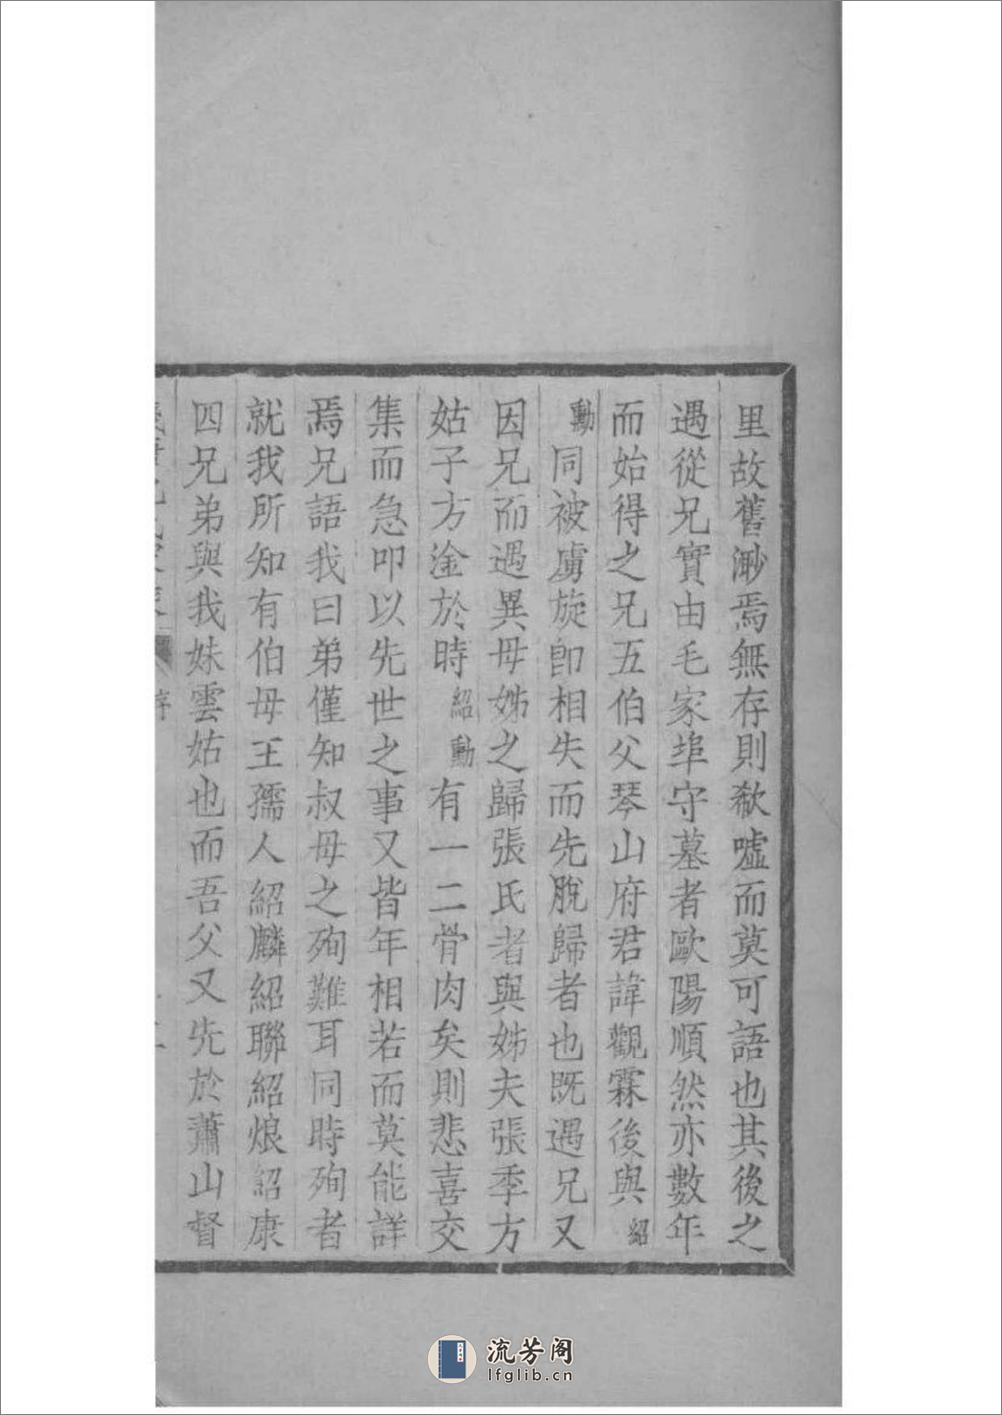 里故舊渺焉無存則欷嘘而莫可語也其後之
遇從兄實由毛家埠守墓者歐陽順然亦數年
而始得之兄五伯父琴山府君諱觀霖後與紹
勳同被虜旋卽相失而先脫歸者也既遇兄又
因兄而遇異母姊之歸張氏者與姊夫張季方
姑子方淦於時紹勳有一二骨肉矣則悲喜交
集而急叩以先世之事又皆年相若而莫能詳
焉兄語我曰弟僅知叔母之殉難耳同時殉者
就我所知有伯母王孺人紹麟紹聯紹烺紹康
四兄弟與我妹雲姑也而吾父又先於蕭山督
序
流芳阁
lfglib.cn